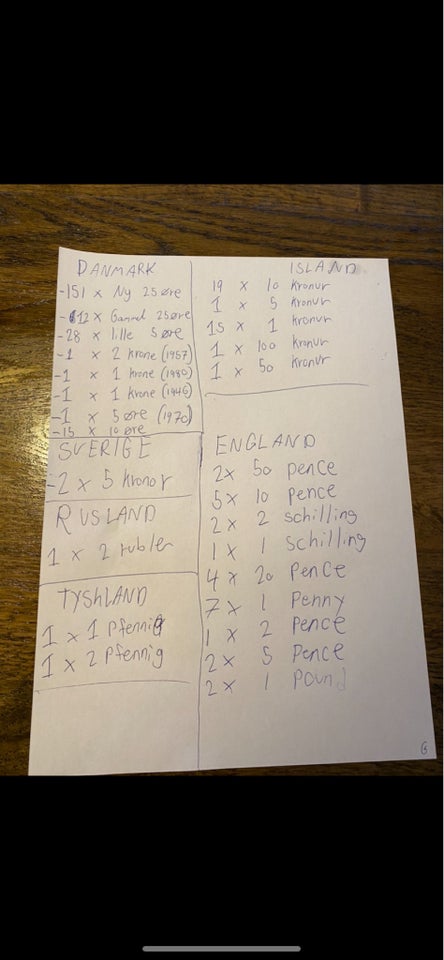 DANMARK
-151 x Ny 25 øre
-12 x Gammel 25 øre
-28 x lille 5 øre
-1 x 2 krone (1957)
-1 x 1 krone (1980)
-1 x 1 krone (1946)
-1 x 5 øre (1970)
-15 x 10 øre
SVERIGE
-2 x 5 kronor
RUSLAND
1 x 2 rubler
TYSKLAND
1 x 1 Pfennig
1 x 2 Pfennig
ISLAND
19 x 10 kronur
1 x 5 kronur
15 x 1 kronur
1 x 100 kronur
1 x 50 kronur
ENGLAND
2x 50 pence
5x 10 pence
2 x 2 schilling
1 x 1 schilling
4 x 20 pence
7 x 1 penny
1 x 2 pence
2x 5 pence
2x 1 pound